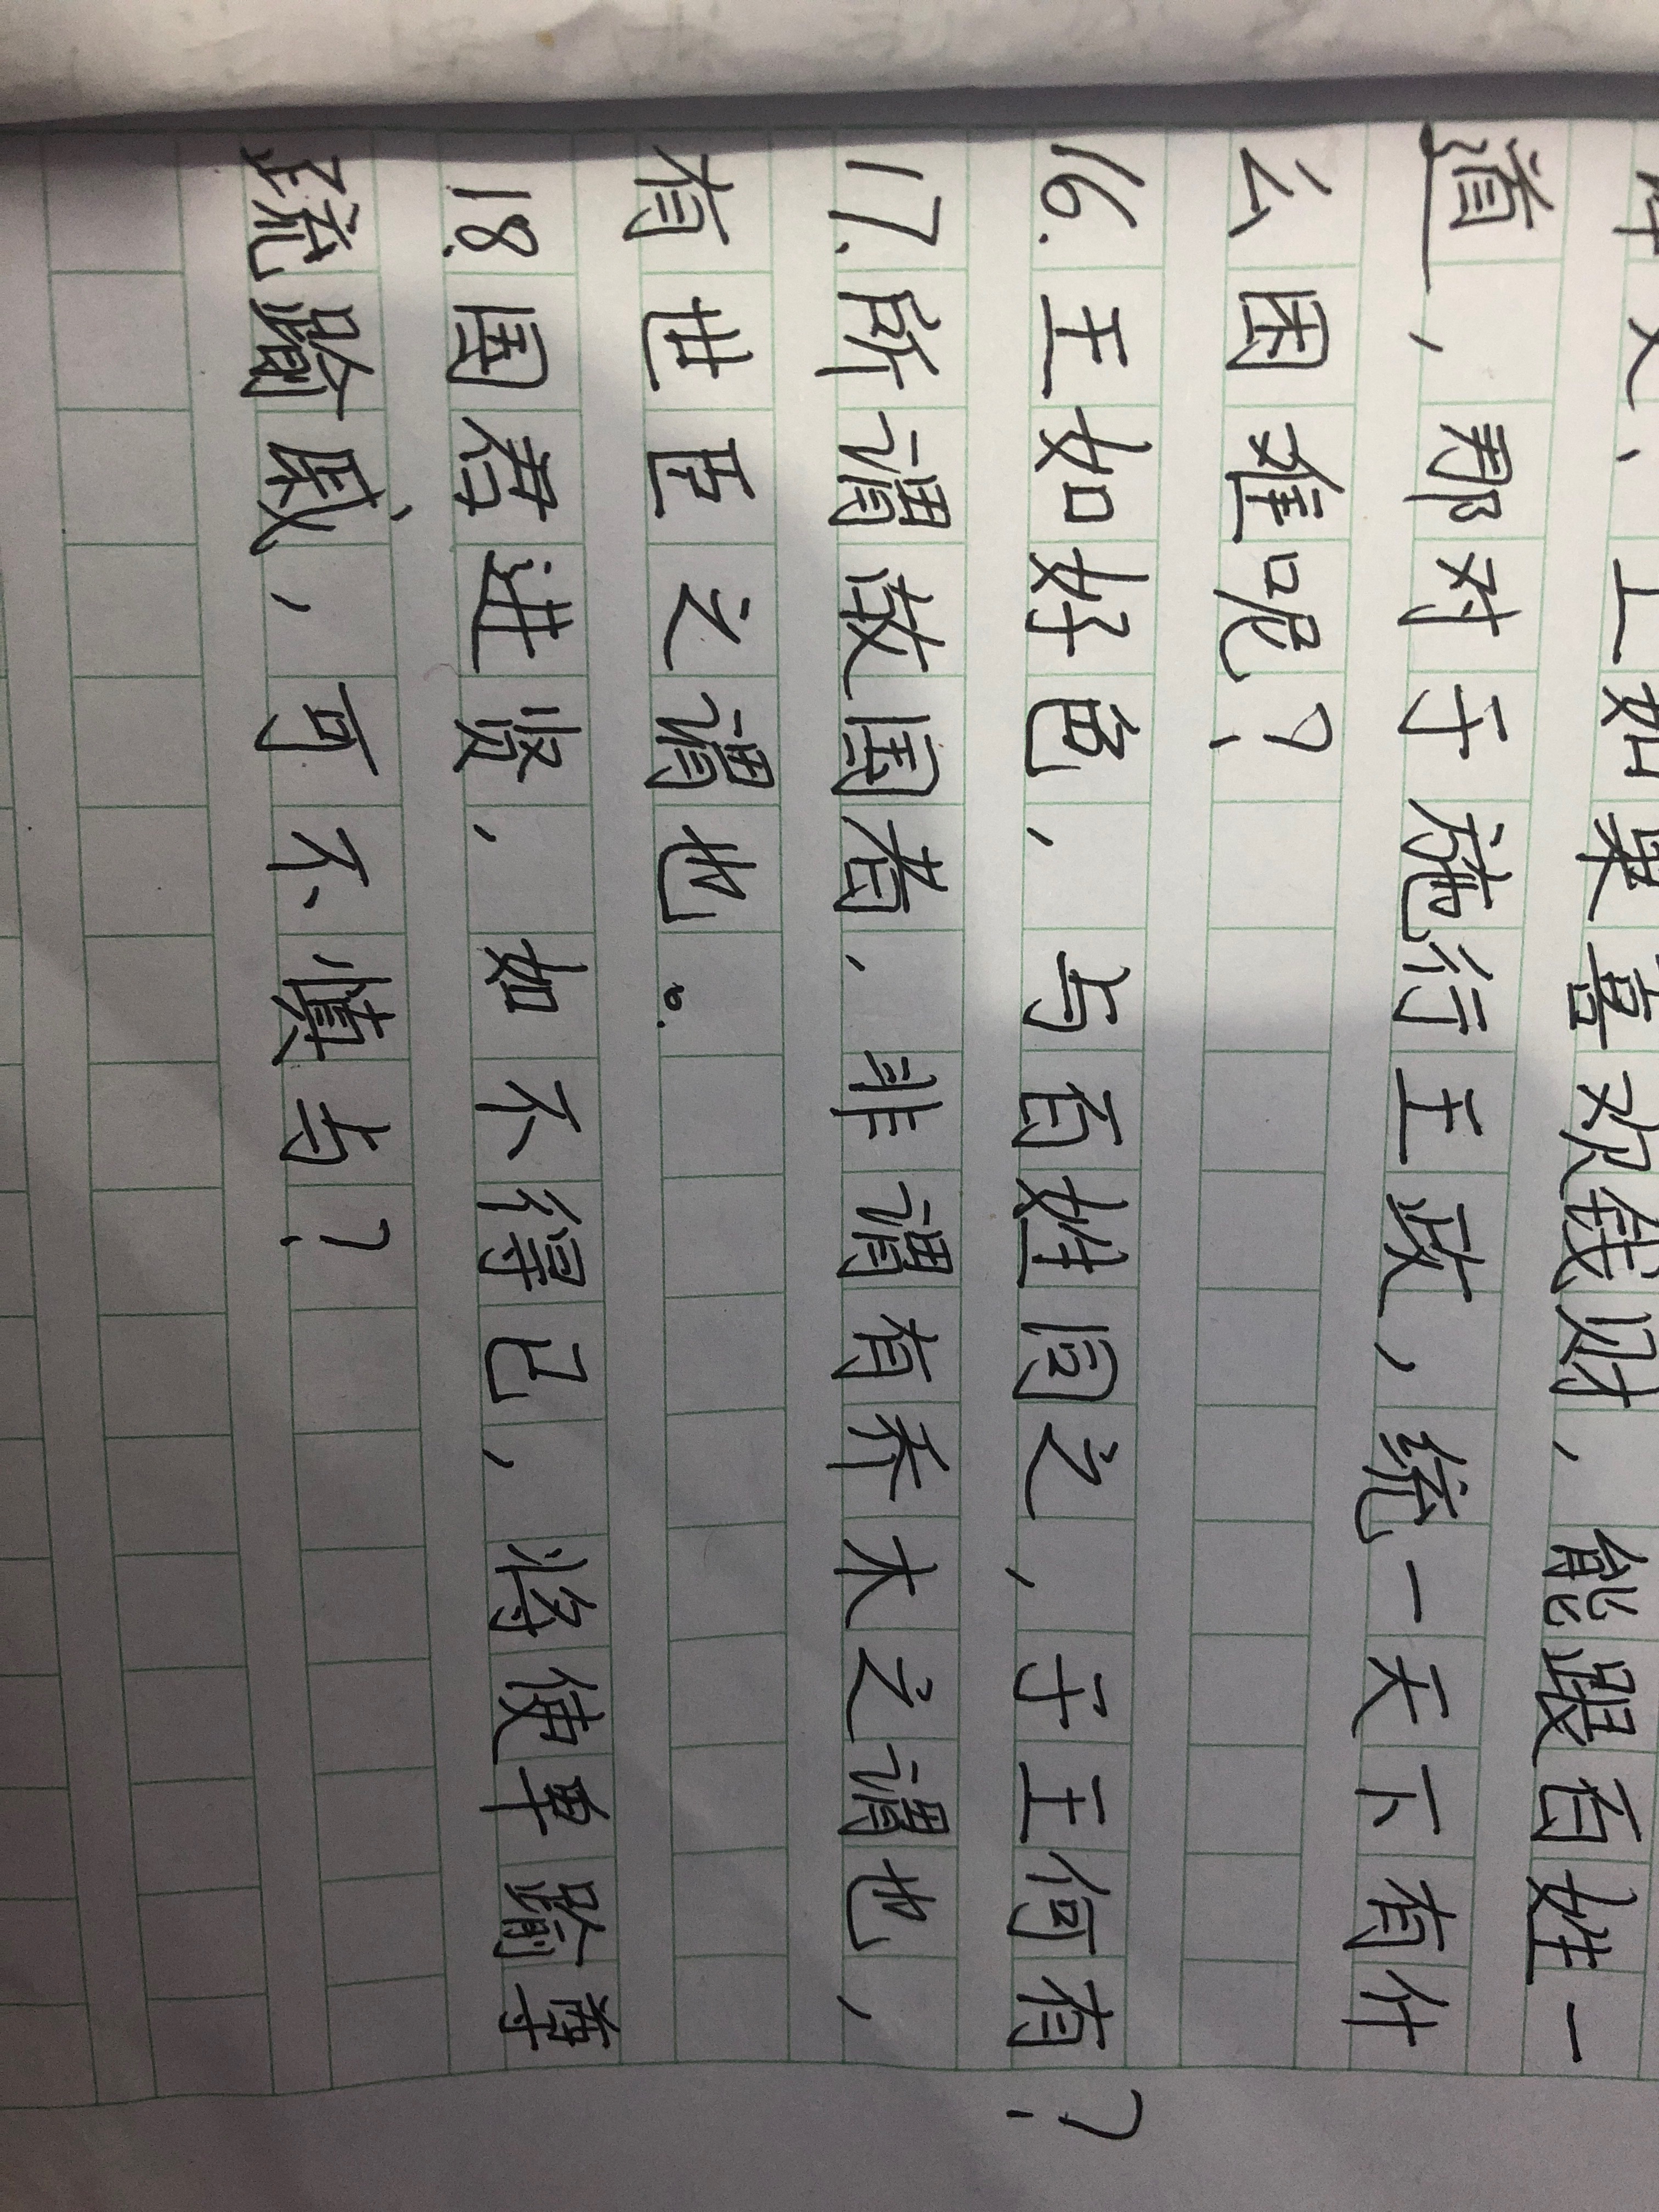 译文：王如果喜欢钱财，能跟百姓一
道，那对于施行王政，统一天下有什
么困难呢？
16.王如好色，与百姓同之，于王何有？
17.所谓故国者，非谓有乔木之谓也，
有世臣之谓也。
18.国君进贤，如不得已，将使卑踰尊
疏踰戚，可不慎与？